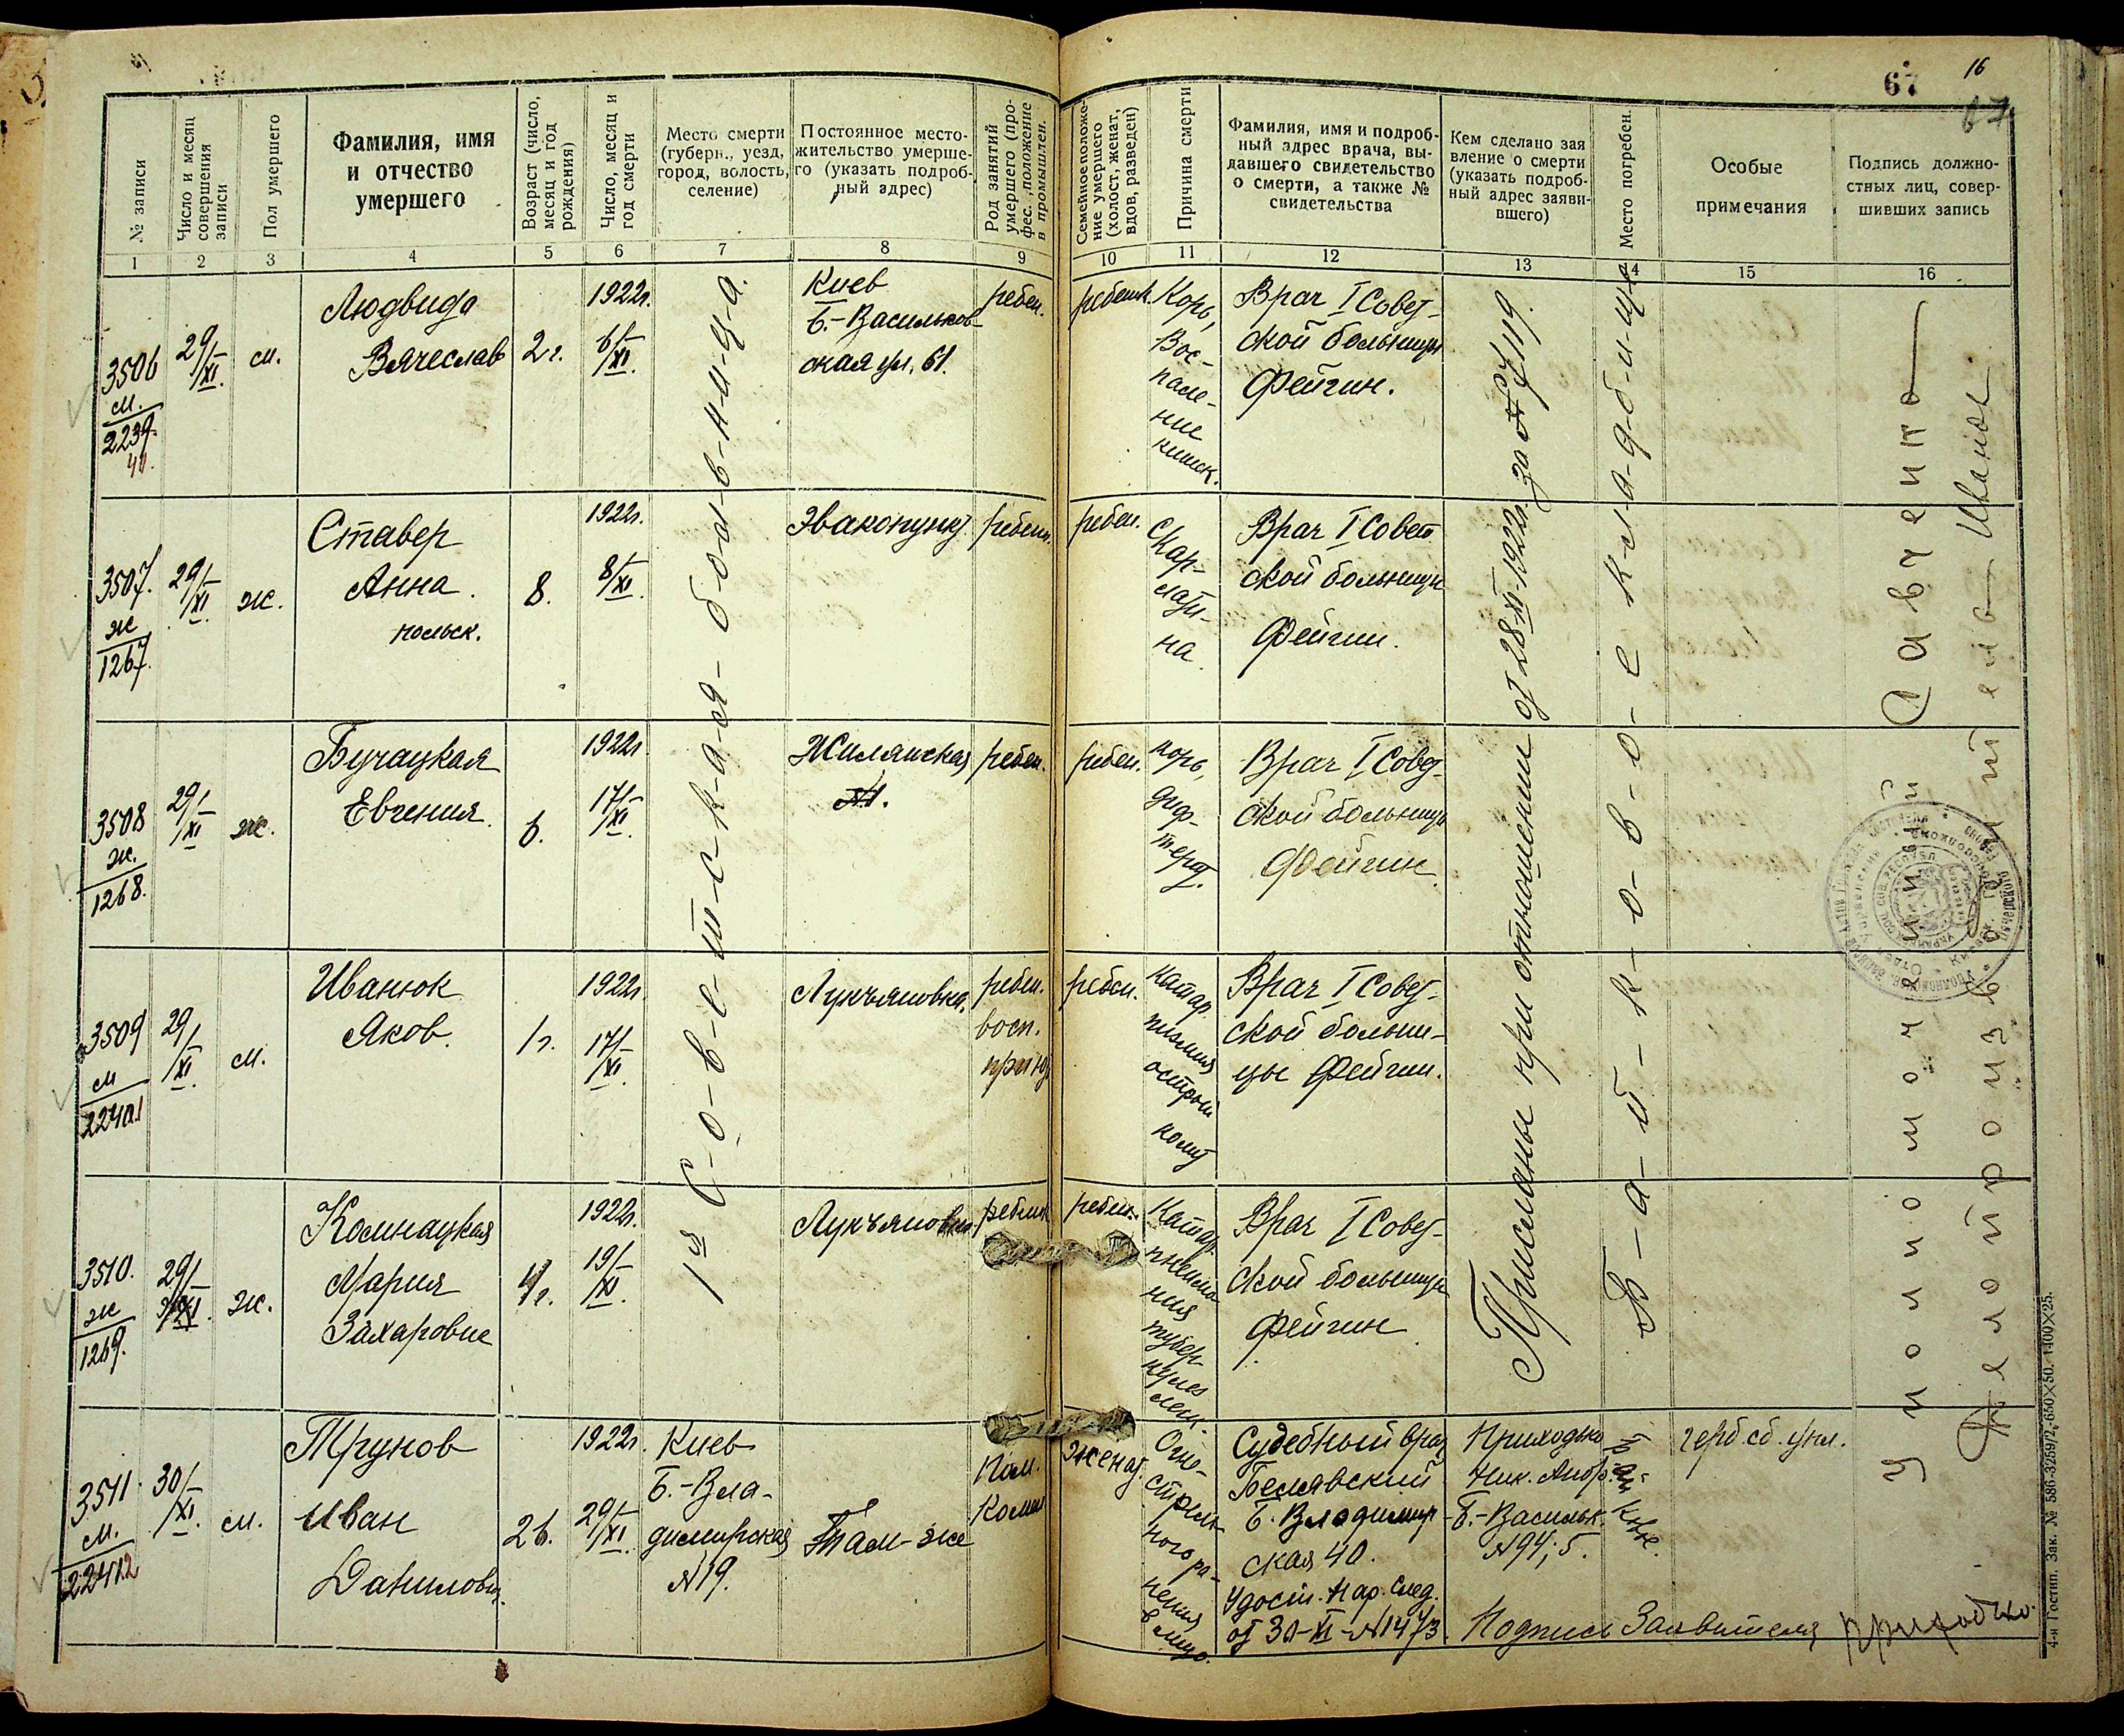 67
16
67
№ записи
Число и месяц
совершения
записи
Пол умершего
Фамилия, имя
и отчество
умершего
Возраст (число,
месяц и год
рождения)
Число, месяц и
год смерти
Место смерти
(губерн., уезд,
город, волость,
селение)
Постоянное место-
жительство умерше-
го (указать подроб-
ный адрес)
Род занятий
умершего (про-
фес., положение
в промышлен.
Семейное положе-
ние умершего
(холост, женат,
вдов, разведен)
Причина смерти
Фамилия, имя и подроб-
ный адрес врача, вы-
давшего свидетельство
о смерти, а также №
свидетельства
Кем сделано зая
вление о смерти
(указать подроб-
ный адрес заяви-
вшего)
Место погребен.
Особые
примечания
Подпись должно-
стных лиц, совер-
шивших запись
1 2 3 4 5 6 7 8 9 10 11 12 13 14 15 16
3506
м.
2239.
40.
29/XI.
м.
Людвида
Вячеслав
2 г.
1922г.
6/XI.
Киев
Б.-Васильков-
ская ул. 61.
ребен.
ребенк.
Корь,
Вос-
пале-
ние
кишк.
Врач I Совет-
ской больницы
Фейгин.
3507.
ж
1267.
29/XI.
ж.
Ставер
Анна.
польск.
8.
1922г.
8/XI.
Эвакопункт
ребенк.
ребен.
Скар-
лати-
на.
Врач I Совет
ской больницы
Фейгин.
3508
ж.
1268.
29/XI
ж.
Бучацкая
Евгения.
6.
1922г
17/XI.
Жилянская
№1.
ребен.
ребен.
корь,
диф-
терит.
Врач I Совет-
ской больницы
Фейгин.
3509
м
22401
29/XI.
м.
Иванюк
Яков.
1 г.
1922г
17/XI.
Лукъяновка.
ребен.
восп.
приют
ребен.
катар.
острый
колит
Врач I Совет-
ской больни-
цы Фейгин.
3510.
ж
1269.
29/XI.
ж.
Комнацкая
Мария
Захаровне
4 г.
1922г.
19/XI.
Лукъяновка.
ребенк
ребенк.
Катар.
пневмо
ния
тубер-
кулез
легк.
Врач I Совет-
ской больницы
Фейгин.
1ая С-о-в-е-т-с-к-а-я- б-о-л-ь-н-и-ц-а.
Присланы при отношении от 28-XI-1922г. за № 7119.
Б-а-й-к-о-в-о-е к-л-а-д-б-и-ще
Уполномоченный Савченко
Делопроизводитель Иванов.
3511.
м.
22412
30/XI.
м.
Трунов
Иван
Данилович.
26.
1922г.
29/XI.
Киев
Б.-Вла-
димирская
№19.
Там-же
Пом.
Коми
женат.
Огне-
стрель
ного ра-
нения
в лицо.
Судебный врач
Белявский
Б. Владимир-
ская 40.
Удост. Нар. След.
от 30-XI-№1473.
Приходько
Ник. Андр.
Б.-Васильк.
№94, 5.
герб. сб. упл.
Подпись Заявителя Приходько.
4-я Гостип. Зак. № 586-3259/2, 650×50. 1400×25.